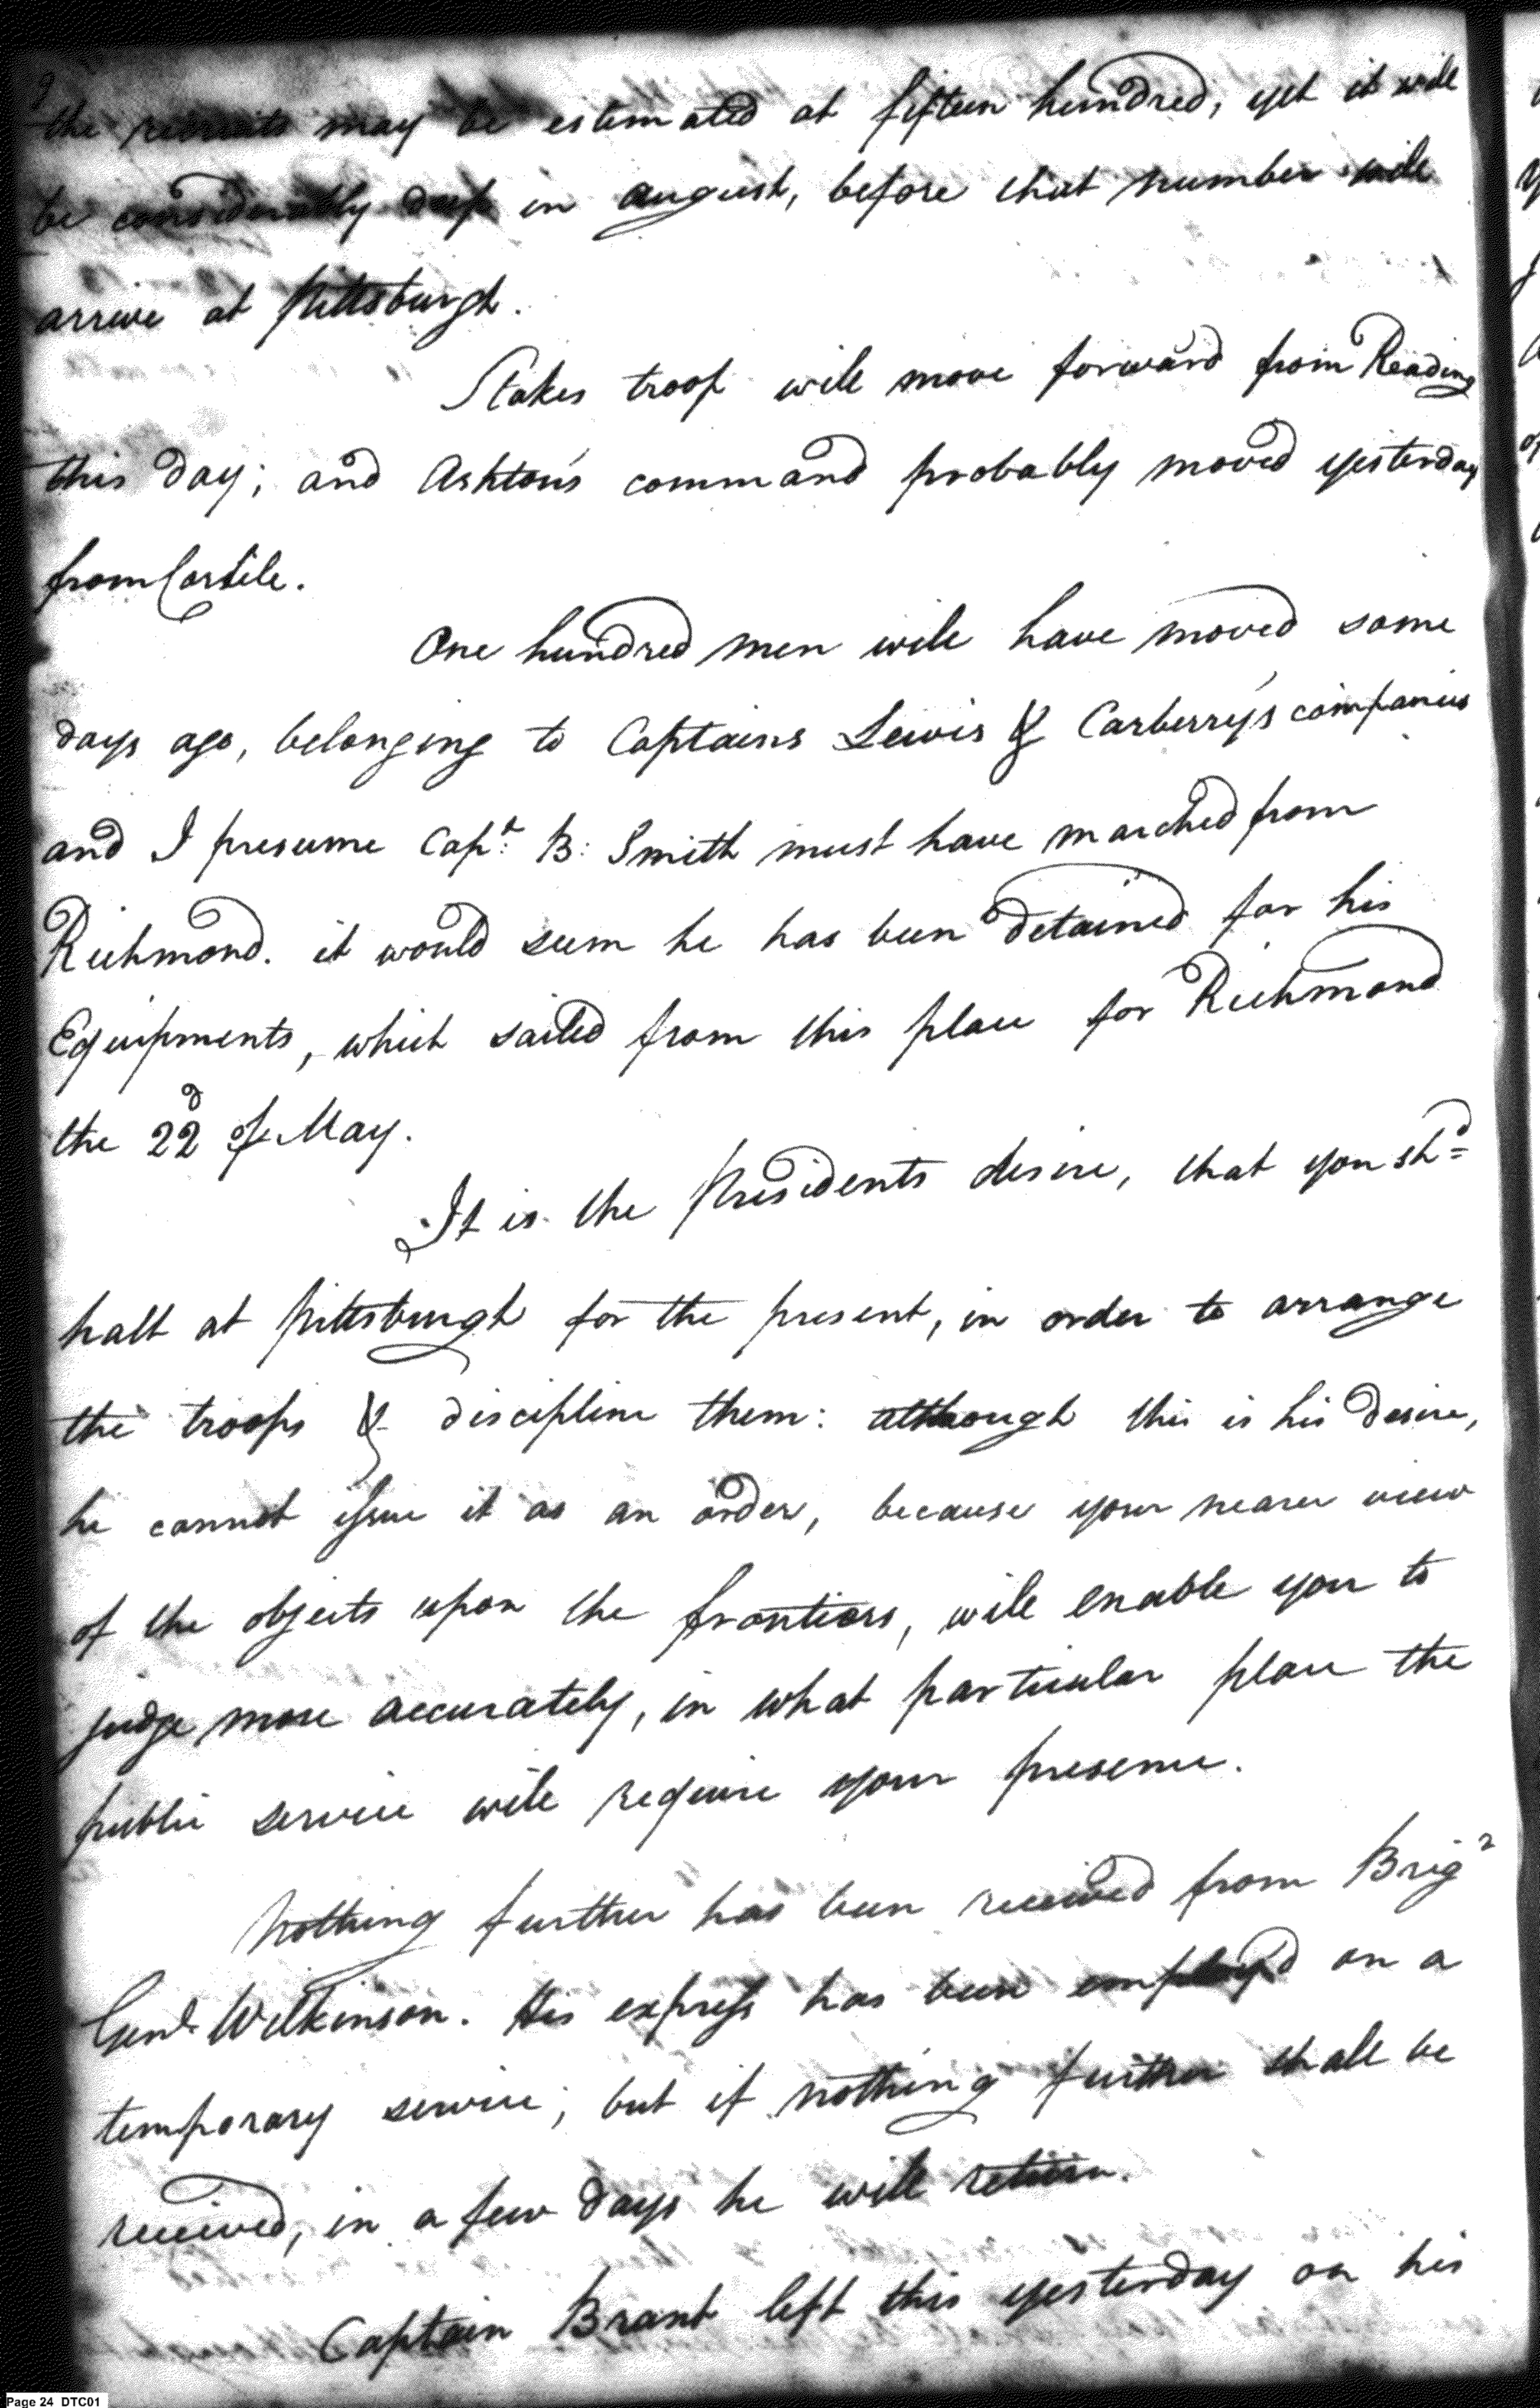 the recruits may be estimated at fifteen hundred, yet it will
be considerably deep in august, before that number will
arrive at Pittsburgh.
Stakes troop will move forward from Reading
this day; and Ashton's command probably moved yesterday
from Carlile.
One hundred men will have moved some
days ago, belonging to Captains Lewis & Carberry's companies
and I presume Capt. B: Smith must have marched from
Richmond. it would seem he has been detained for his
Equipments, which sailed from this place for Richmond
the 22d of May.
It is the Presidents desire, that you shd
halt at Pittsburgh for the present, in order to arrange
the troops & discipline them: although this is his desire,
he cannot issue it as an order, because your nearer view
of the objects upon the frontiers, will enable you to
judge more accurately, in what particular place the
public service will require your presence.
Nothing further has been received from Brigr
Genl. Wilkinson. His express has been employ'd on a
temporary service; but if nothing further shall be
received, in a few days he will return.
Captain Brant left this yesterday on his
Page 24 DTC01